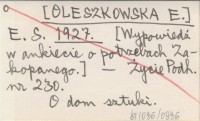 [OLESZKOWSKA E.]
E. S. 1927. [Wypowiedź
w ankiecie o potrzebach Za-
kopanego.] — Życie Podh.
nr 230.
O dom sztuki.